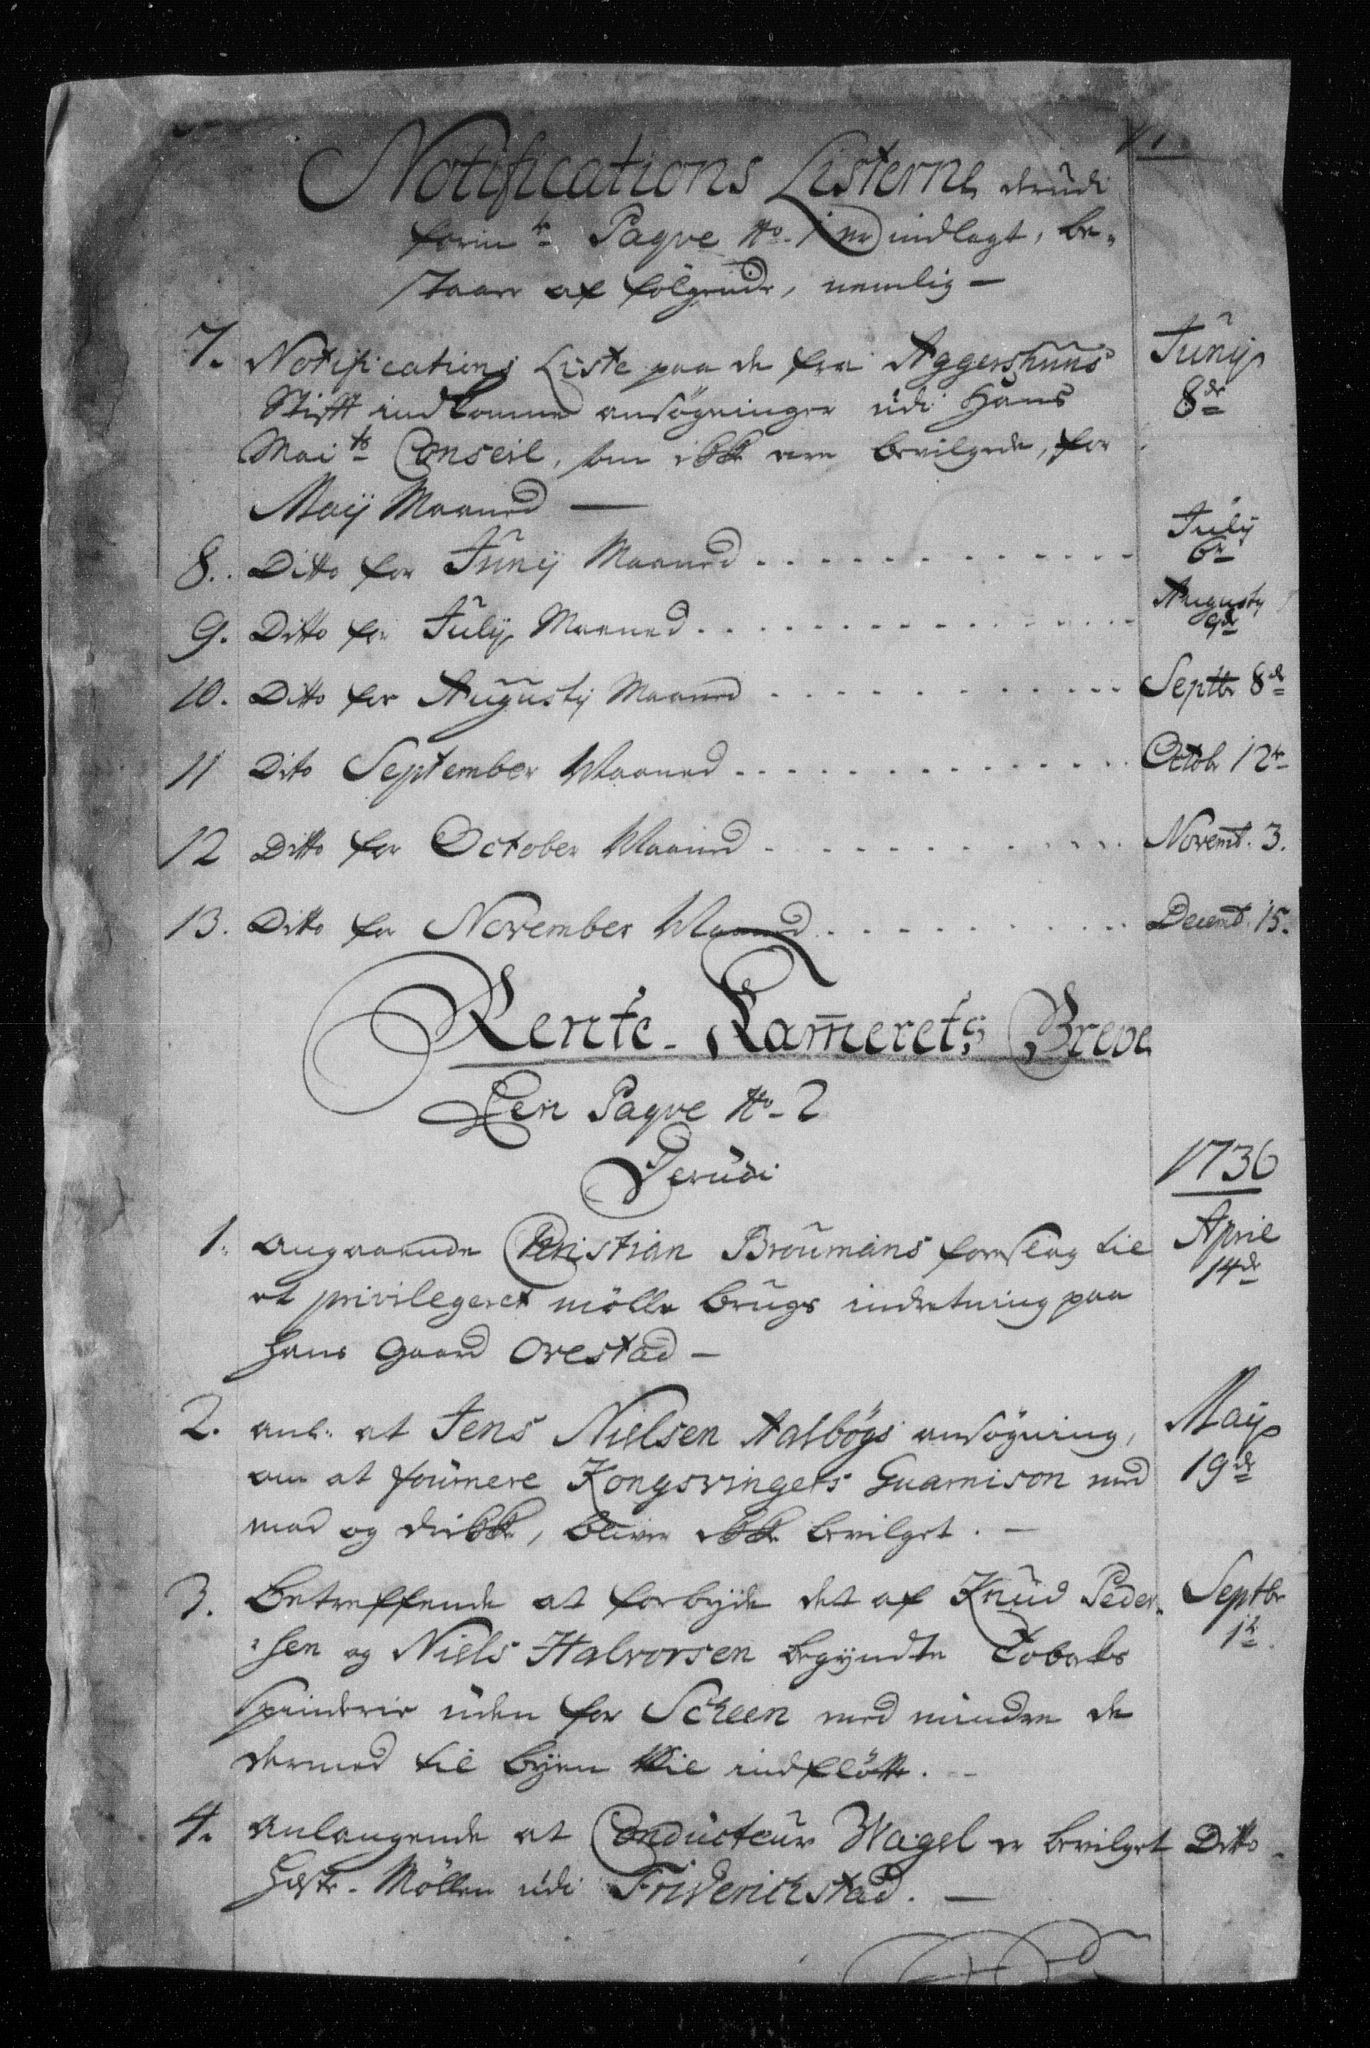 Notifications Listerne, derudi
form te Paqve No. 1 er indlagt, be-
staar af følgende, nemlig —
7. Notifications Liste paa de fra Aggershuus Junij
Stifft indkomne ansøgninger udi Hans 8de
Mai ts Conseil, som ikke ere bevilgede, for
Maij Maaned —
8. Ditto for Junij Maaned . . . . . . . . . . July 6te
9. Ditto for Julij Maaned . . . . . . . . . . Augusty 9de
10. Ditto for Augustij Maaned . . . . . . . . . . Septbr 8de
11 Dito September Maaned . . . . . . . . . . Octobr 12te
12 Ditto for October Maaned . . . . . . . . . . Novemb. 3.
13. Ditto for November Maaned . . . . . . . . . . Decemb. 15.
Rente-Kam̅erets Breve
Een Paqve No-2
Derudi
1736
1. angaaende Christian Broumans forslag til April
et privilegeret mølle brugs indretning paa 14de
hans gaard Orestad —
2. anl. at Jens Nielsen Aalbøgs ansøgning, Maij
om at fournere Kongsvingers Guarnison med 19de
mad og drikke, bliver ikke bevilget. —
3. Betreffende at forbyde det af Knud Peder- Septbr
sen og Niels Halvorsen begyndte Tobaks 1te
spinderie uden for Scheen med mindre de
dermed til byen vil indfløtte. —
4. Anlangende at Conducteur Wagel er bevilget Ditto
Heste-Møllen udi Friderichstad. —